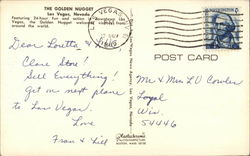 THE GOLDEN NUGGET
Las Vegas, Nevada
Featuring 24-hour fun and action in downtown Las
Vegas, the Golden Nugget welcomes visitors from
around the world.
LAS VEGAS
POST CARD
Dear Loretta &
Close Store!
Sell Everything!
Get on next plane
to Las Vegas.
Love
Fran & Bill
Mr & Mrs L V Cowles
Loyal
Wis.
54446